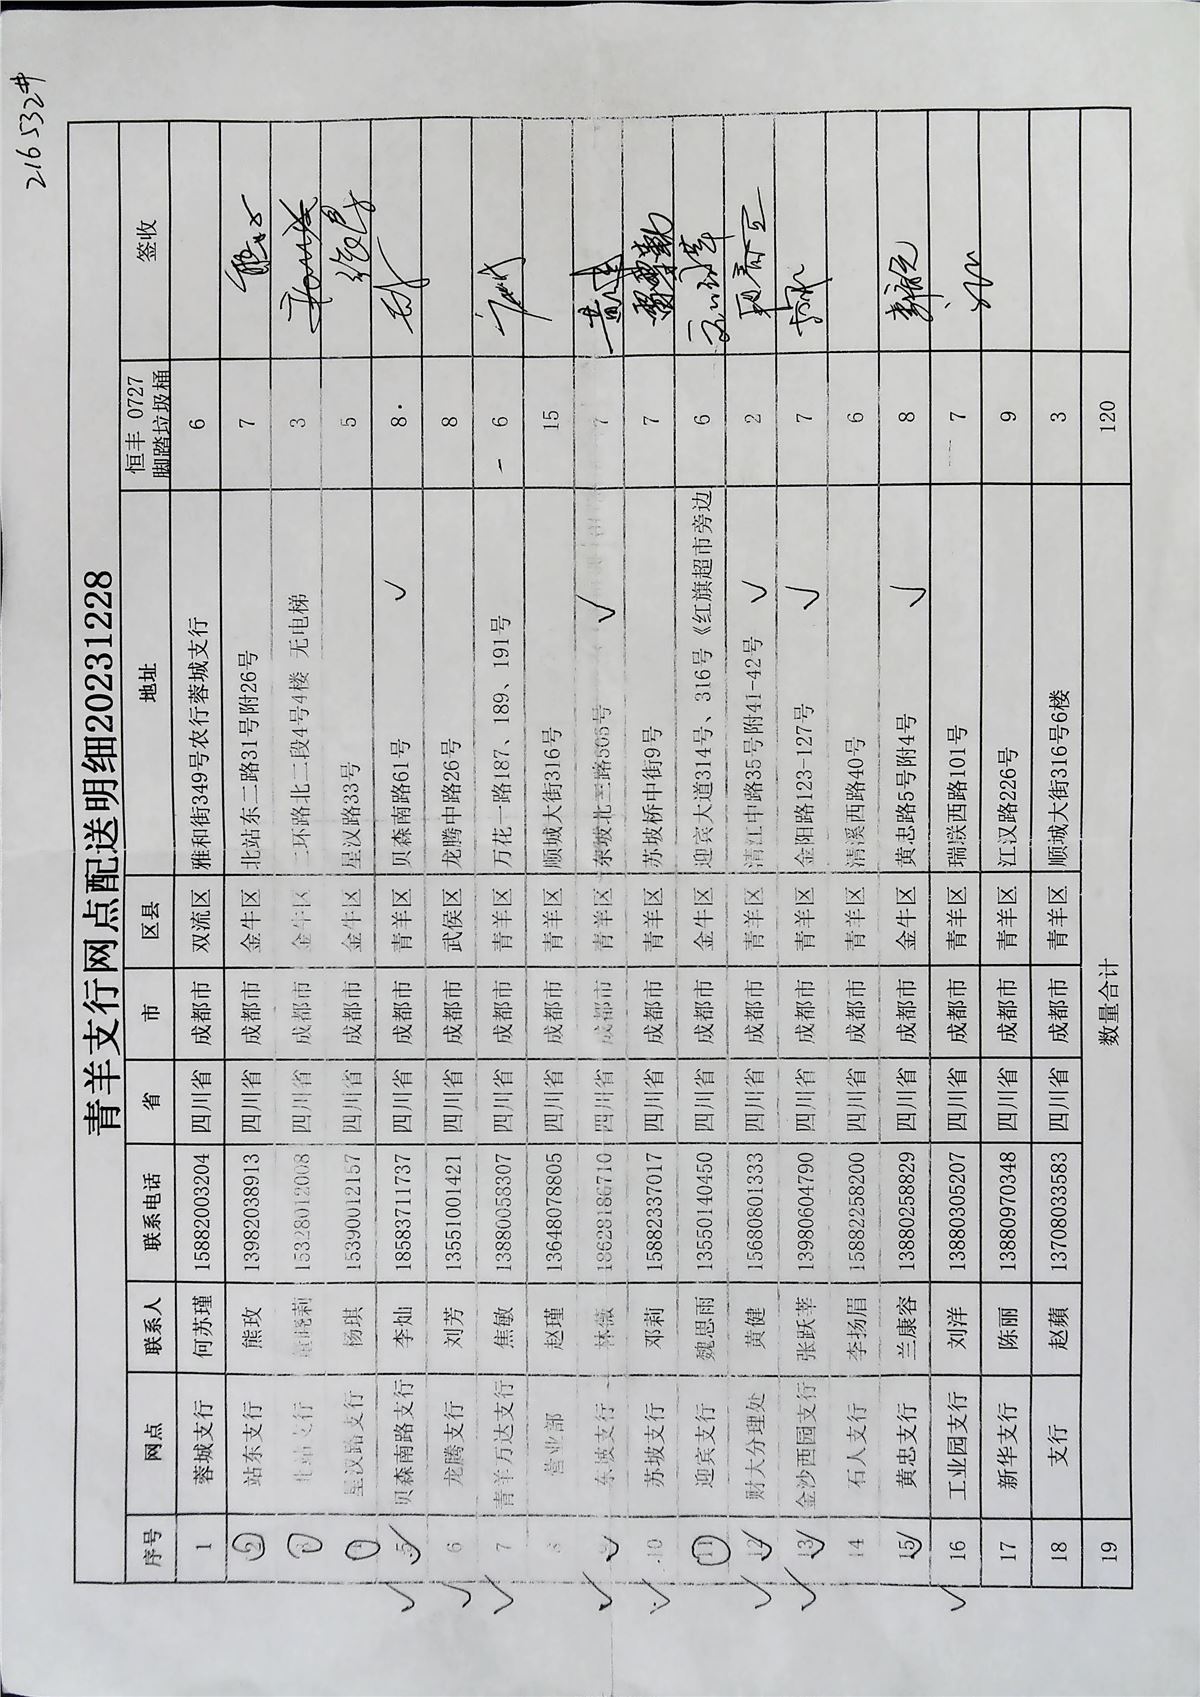 216532#
青羊支行网点配送明细20231228
序号 网点 联系人 联系电话 省 市 区县 地址 恒丰 0727 脚踏垃圾桶 签收
1 蓉城支行 何苏瑾 15882003204 四川省 成都市 双流区 雅和街349号农行蓉城支行 6
2 站东支行 熊玫 13982038913 四川省 成都市 金牛区 北站东二路31号附26号 7
3 北站支行 晓莉 15328012008 四川省 成都市 金牛区 二环路北二段4号4楼 无电梯 3
星汉路支行 杨琪 15390012157 四川省 成都市 金牛区 星汉路33号 5
5 贝森南路支行 李灿 18583711737 四川省 成都市 青羊区 贝森南路61号 8
6 龙腾支行 刘芳 13551001421 四川省 成都市 武侯区 龙腾中路26号 8
7 青羊万达支行 焦敏 13880058307 四川省 成都市 青羊区 万花一路187、189、191号 6
8 营业部 赵瑾 13648078805 四川省 成都市 青羊区 顺城大街316号 15
9 东坡支行 林薇 18628186710 四川省 成都市 青羊区 东坡北三路505号 7
10 苏坡支行 邓莉 15882337017 四川省 成都市 青羊区 苏坡桥中街9号 7
11 迎宾支行 魏思雨 13550140450 四川省 成都市 金牛区 迎宾大道314号、316号《红旗超市旁边 6
12 财大分理处 黄健 15680801333 四川省 成都市 青羊区 清江中路35号附41-42号 2
13 金沙西园支行 张跃莘 13980604790 四川省 成都市 青羊区 金阳路123-127号 7
14 石人支行 李扬眉 15882258200 四川省 成都市 青羊区 清溪西路40号 6
15 黄忠支行 兰康容 13880258829 四川省 成都市 金牛区 黄忠路5号附4号 8
16 工业园支行 刘洋 13880305207 四川省 成都市 青羊区 瑞联西路101号 7
17 新华支行 陈丽 13880970348 四川省 成都市 青羊区 江汉路226号 9
18 支行 赵蘋 13708033583 四川省 成都市 青羊区 顺城大街316号6楼 3
19 数量合计 120